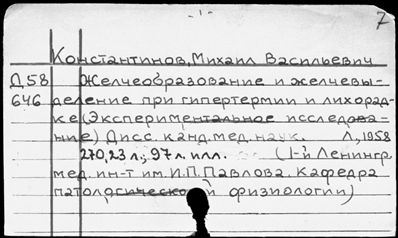 - 1 -
7
Константинов, Михаил Васильевич
Д58 Желчеобразование и желчевы-
646 деление при гипертермии и лихорад-
ке (Экспериментальное исследова-
ние) Дисс. канд. мед. наук. Л, 1958
270, 23 л.; 97 л. илл. (1-й Ленингр.
мед. ин-т им. И.П. Павлова. Кафедра
патологической физиологии)